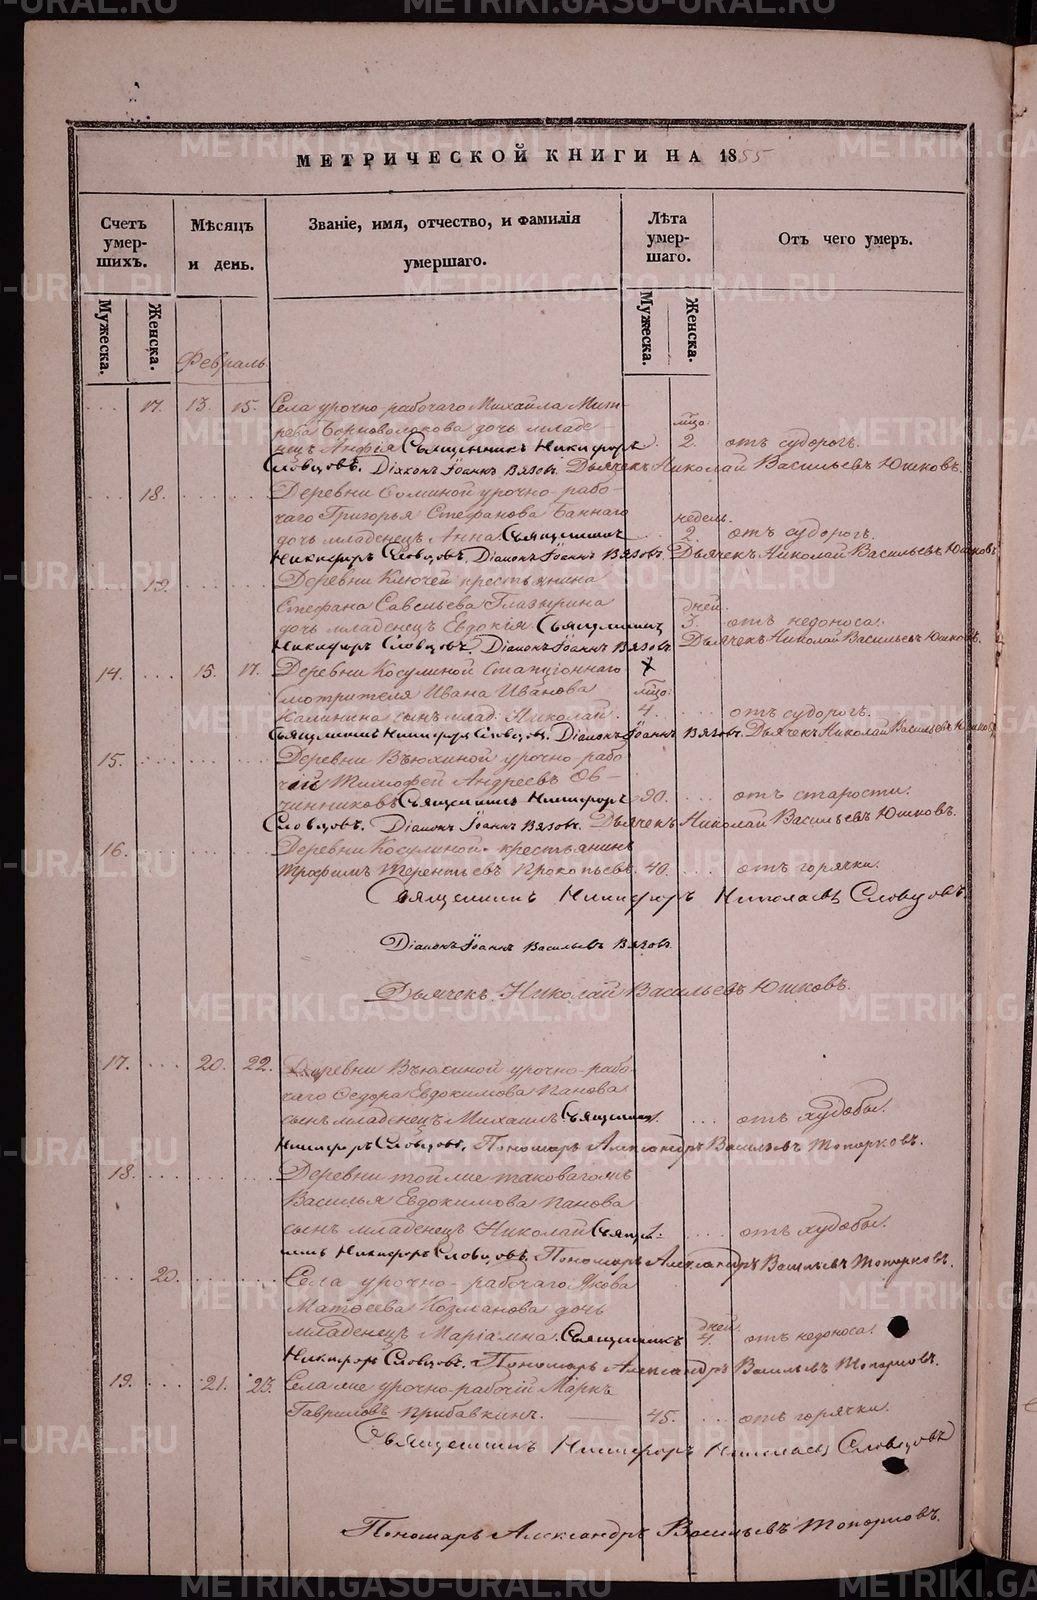 МЕТРИЧЕСКОЙ КНИГИ НА 1855
Счетъ умер- шихъ.
Мѣсяцъ и день.
Званіе, имя, отчество, и фамилія умершаго.
Лѣта умер- шаго.
Отъ чего умеръ.
Мужеска. Женска. Мужеска. Женска.
Февраль
17. 13. 15. Села урочно-рабочаго Михаила Мит-
рева Борноволокова дочь младе
нецъ Анфія Священникъ Никифоръ мѣсц: 2. отъ судорогъ.
Словцовъ. Діяконъ Іоаннъ Вязовъ. Дьячекъ Николай Васильевъ Юшковъ.
18. Деревни Соминой урочно-рабо-
чаго Григорья Стефанова Баннаго недель.
дочь младенецъ Анна. Священникъ 2. отъ судорогъ.
Никифоръ Словцовъ. Діаконъ Іоаннъ Вязовъ. Дьячекъ Николай Васильевъ Юшковъ
19. Деревни Ключей крестьянина
Стефана Савельева Глазырина дней.
дочь младенецъ Евдокія Священникъ 3. отъ недоноса.
Никифоръ Словцовъ. Діаконъ Іоаннъ Вязовъ Дьячекъ Николай Васильевъ Юшковъ.
14. 15. 17. Деревни Косулиной Станціоннаго
смотрителя Ивана Иванова мѣсц:
Калинина сынъ млад: Николай. 4. отъ судорогъ.
Священникъ Никифоръ Словцовъ. Діаконъ Іоаннъ Вязовъ. Дьячекъ Николай Васильевъ Юшковъ
15. Деревни Вьюхиной урочно рабо
чій Тимофей Андреевъ Ов-
чинниковъ Священникъ Никифоръ 90. отъ старости.
Словцовъ. Діаконъ Іоаннъ Вязовъ. Дьячекъ Николай Васильевъ Юшковъ.
16. Деревни Косулиной крестьянинъ
Трофимъ Терентьевъ Прокопьевъ. 40. отъ горячки.
Священникъ Никифоръ Николаевъ Словцовъ.
Діаконъ Іоаннъ Васильевъ Вязовъ.
Дьячекъ Николай Васильевъ Юшковъ.
17. 20. 22. Деревни Вьюхиной урочно-рабо-
чаго Федора Евдокимова Панова
сынъ младенецъ Михаилъ Священникъ отъ худобы.
Никифоръ Словцовъ. Пономарь Александръ Васильевъ Топорковъ.
18. Деревни той же таковагожъ
Василья Евдокимова Панова
сынъ младенецъ Николай Священ- отъ худобы.
никъ Никифоръ Словцовъ. Пономарь Александръ Васильевъ Топорковъ.
20. Села урочно-рабочаго Якова
Матѳеева Козманова дочь дней.
младенецъ Маріамна. Священникъ 4. отъ недоноса.
Никифоръ Словцовъ. Пономарь Александръ Васильевъ Топорковъ.
19. 21. 23. Села же урочно-рабочій Маркъ
Гавриловъ Прибавкинъ. 45. отъ горячки.
Священникъ Никифоръ Николаевъ Словцовъ
Пономарь Александръ Васильевъ Топорковъ.
METRIKI.GASO-URAL.RU